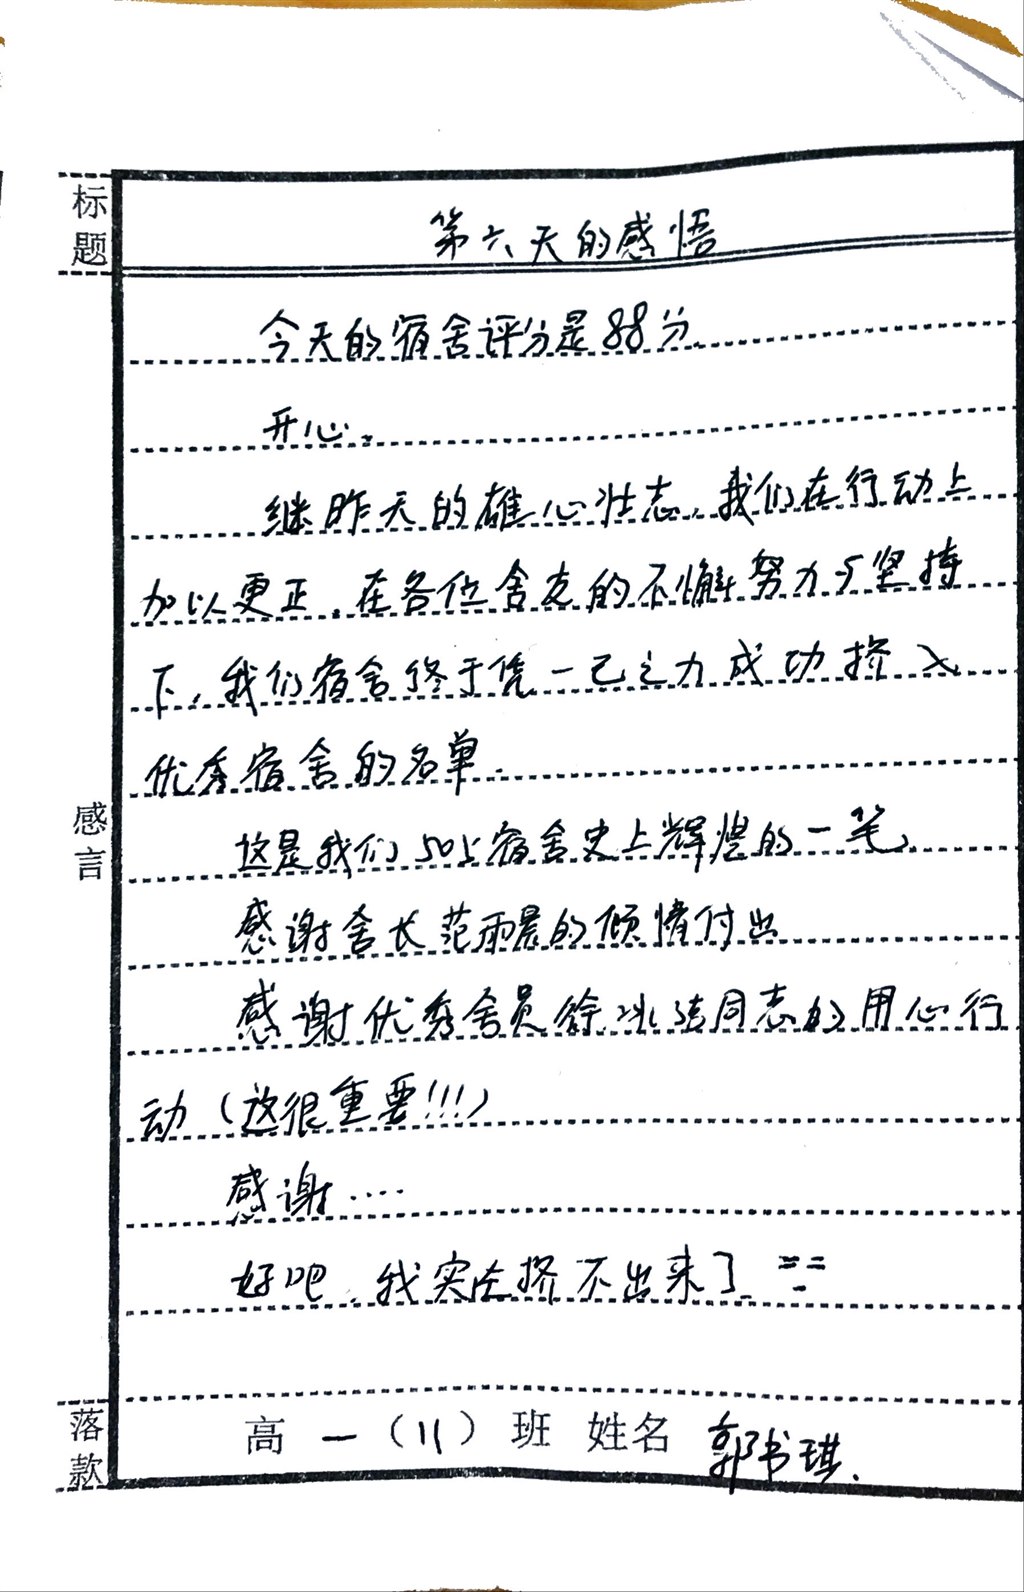 标题
第六天的感悟
今天的宿舍评分是88分.
开心。
继昨天的雄心壮志，我们在行动上
加以更正，在各位舍友的不懈努力与坚持
下，我们宿舍终于凭一己之力成功挤入
优秀宿舍的名单.
感言
这是我们505宿舍史上辉煌的一笔，
感谢舍长范雨晨的倾情付出
感谢优秀舍员徐冰洁同志的用心行
动（这很重要!!!）
感谢....
好吧，我实在挤不出来了
落款
高一（11）班 姓名 郭书琪.